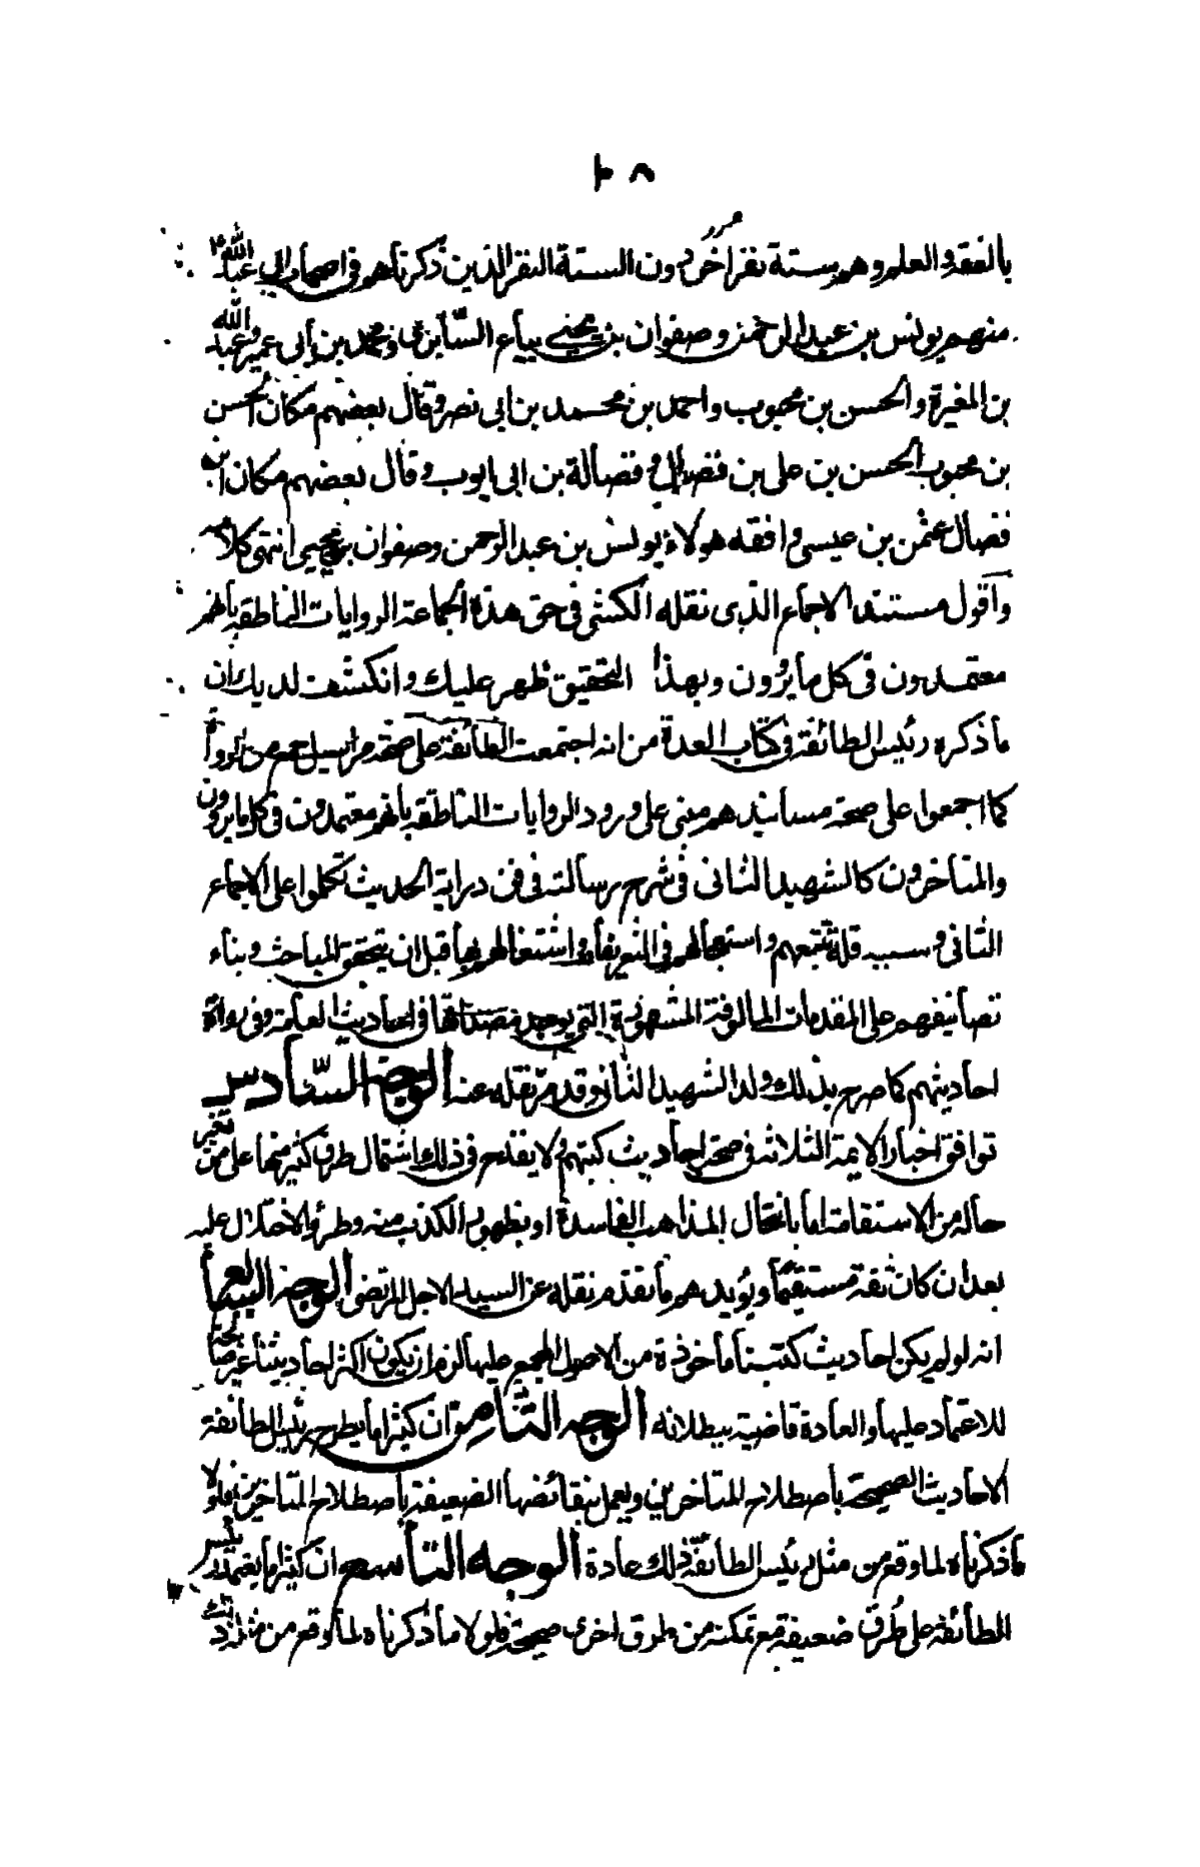 ٢٠٨
بالفقه والعلم وهم ستة نفر اخر دون الستة النفر الذين ذكرناهم في اصحاب ابي عبد الله ع
منهم يونس بن عبد الرحمن وصفوان بن يحيى بياع السابري ومحمد بن ابي عمير وعبد الله
بن المغيرة والحسن بن محبوب واحمد بن محمد بن ابي نصر وقال بعضهم مكان الحسن
بن محبوب الحسن بن علي بن فضال وفضالة بن ايوب وقال بعضهم مكان ابن
فضال عثمن بن عيسى وافقه هولاء يونس بن عبد الرحمن وصفوان بن يحيى انتهى كلامه
واقول مستند الاجماع الذي نقله الكشي في حق هذه الجماعة الروايات الناطقة بانهم
معتمدون في كل ما يروون وبهذا التحقيق ظهر عليك وانكشفت لديك ان
ما ذكره رئيس الطائفة في كتاب العدة من انه اجتمعت الطائفة على صحة مراسيل جمع من الرواة
كما اجمعوا على صحة مسانيدهم مبني على ورود الروايات الناطقة بانهم معتمدون في كل ما يروون
والمتاخرون كالشهيد الثاني في شرح رسالته في فن دراية الحديث تكلموا على الاجماع
الثاني وسببه قلة تتبعهم واستعجالهم في التصنيفات واشتغالهم بها قبل ان يتحقق المباحث وبناء
تصانيفهم على المقدمات المالوفة المشهورة التي يوجد مصداقها في احاديث العامة وفي رواة
احاديثهم كما صرح بذلك ولد الشهيد الثاني وقد مر نقله عنه الوجه السّادس
توافق اخبار الائمة الثلاثة في صحة احاديث كتبهم ولا يقدح في ذلك اشتمال طرق كثير منها على من تغير
حاله من الاستقامة اما بانتحال المذاهب الفاسدة او بظهور الكذب منه وطرؤ الاختلال عليه
بعد ان كان ثقة مستقيما ويؤيدهم ما تقدم نقله عن السيد الاجل المرتضى الوجه السابع
انه لو لم يكن احاديث كتبنا ماخوذة من الاصول المجمع عليها لزم ان يكون اكثر احاديثنا غير صالحة
للاعتماد عليها والعادة قاضية ببطلانه الوجه الثامن ان كثيرا ما يطرح رئيس الطائفة
الاحاديث الصحيحة باصطلاح المتاخرين ويعمل بنقائضها الضعيفة باصطلاح المتاخرين فلولا
ما ذكرناه لما وقع من مثل رئيس الطائفة ذلك عادة الوجه التاسع ان كثيرا ما يعتمد رئيس
الطائفة على طرق ضعيفة مع تمكنه من طرق اخرى صحيحة فلولا ما ذكرناه لما وقع من مثله ذلك